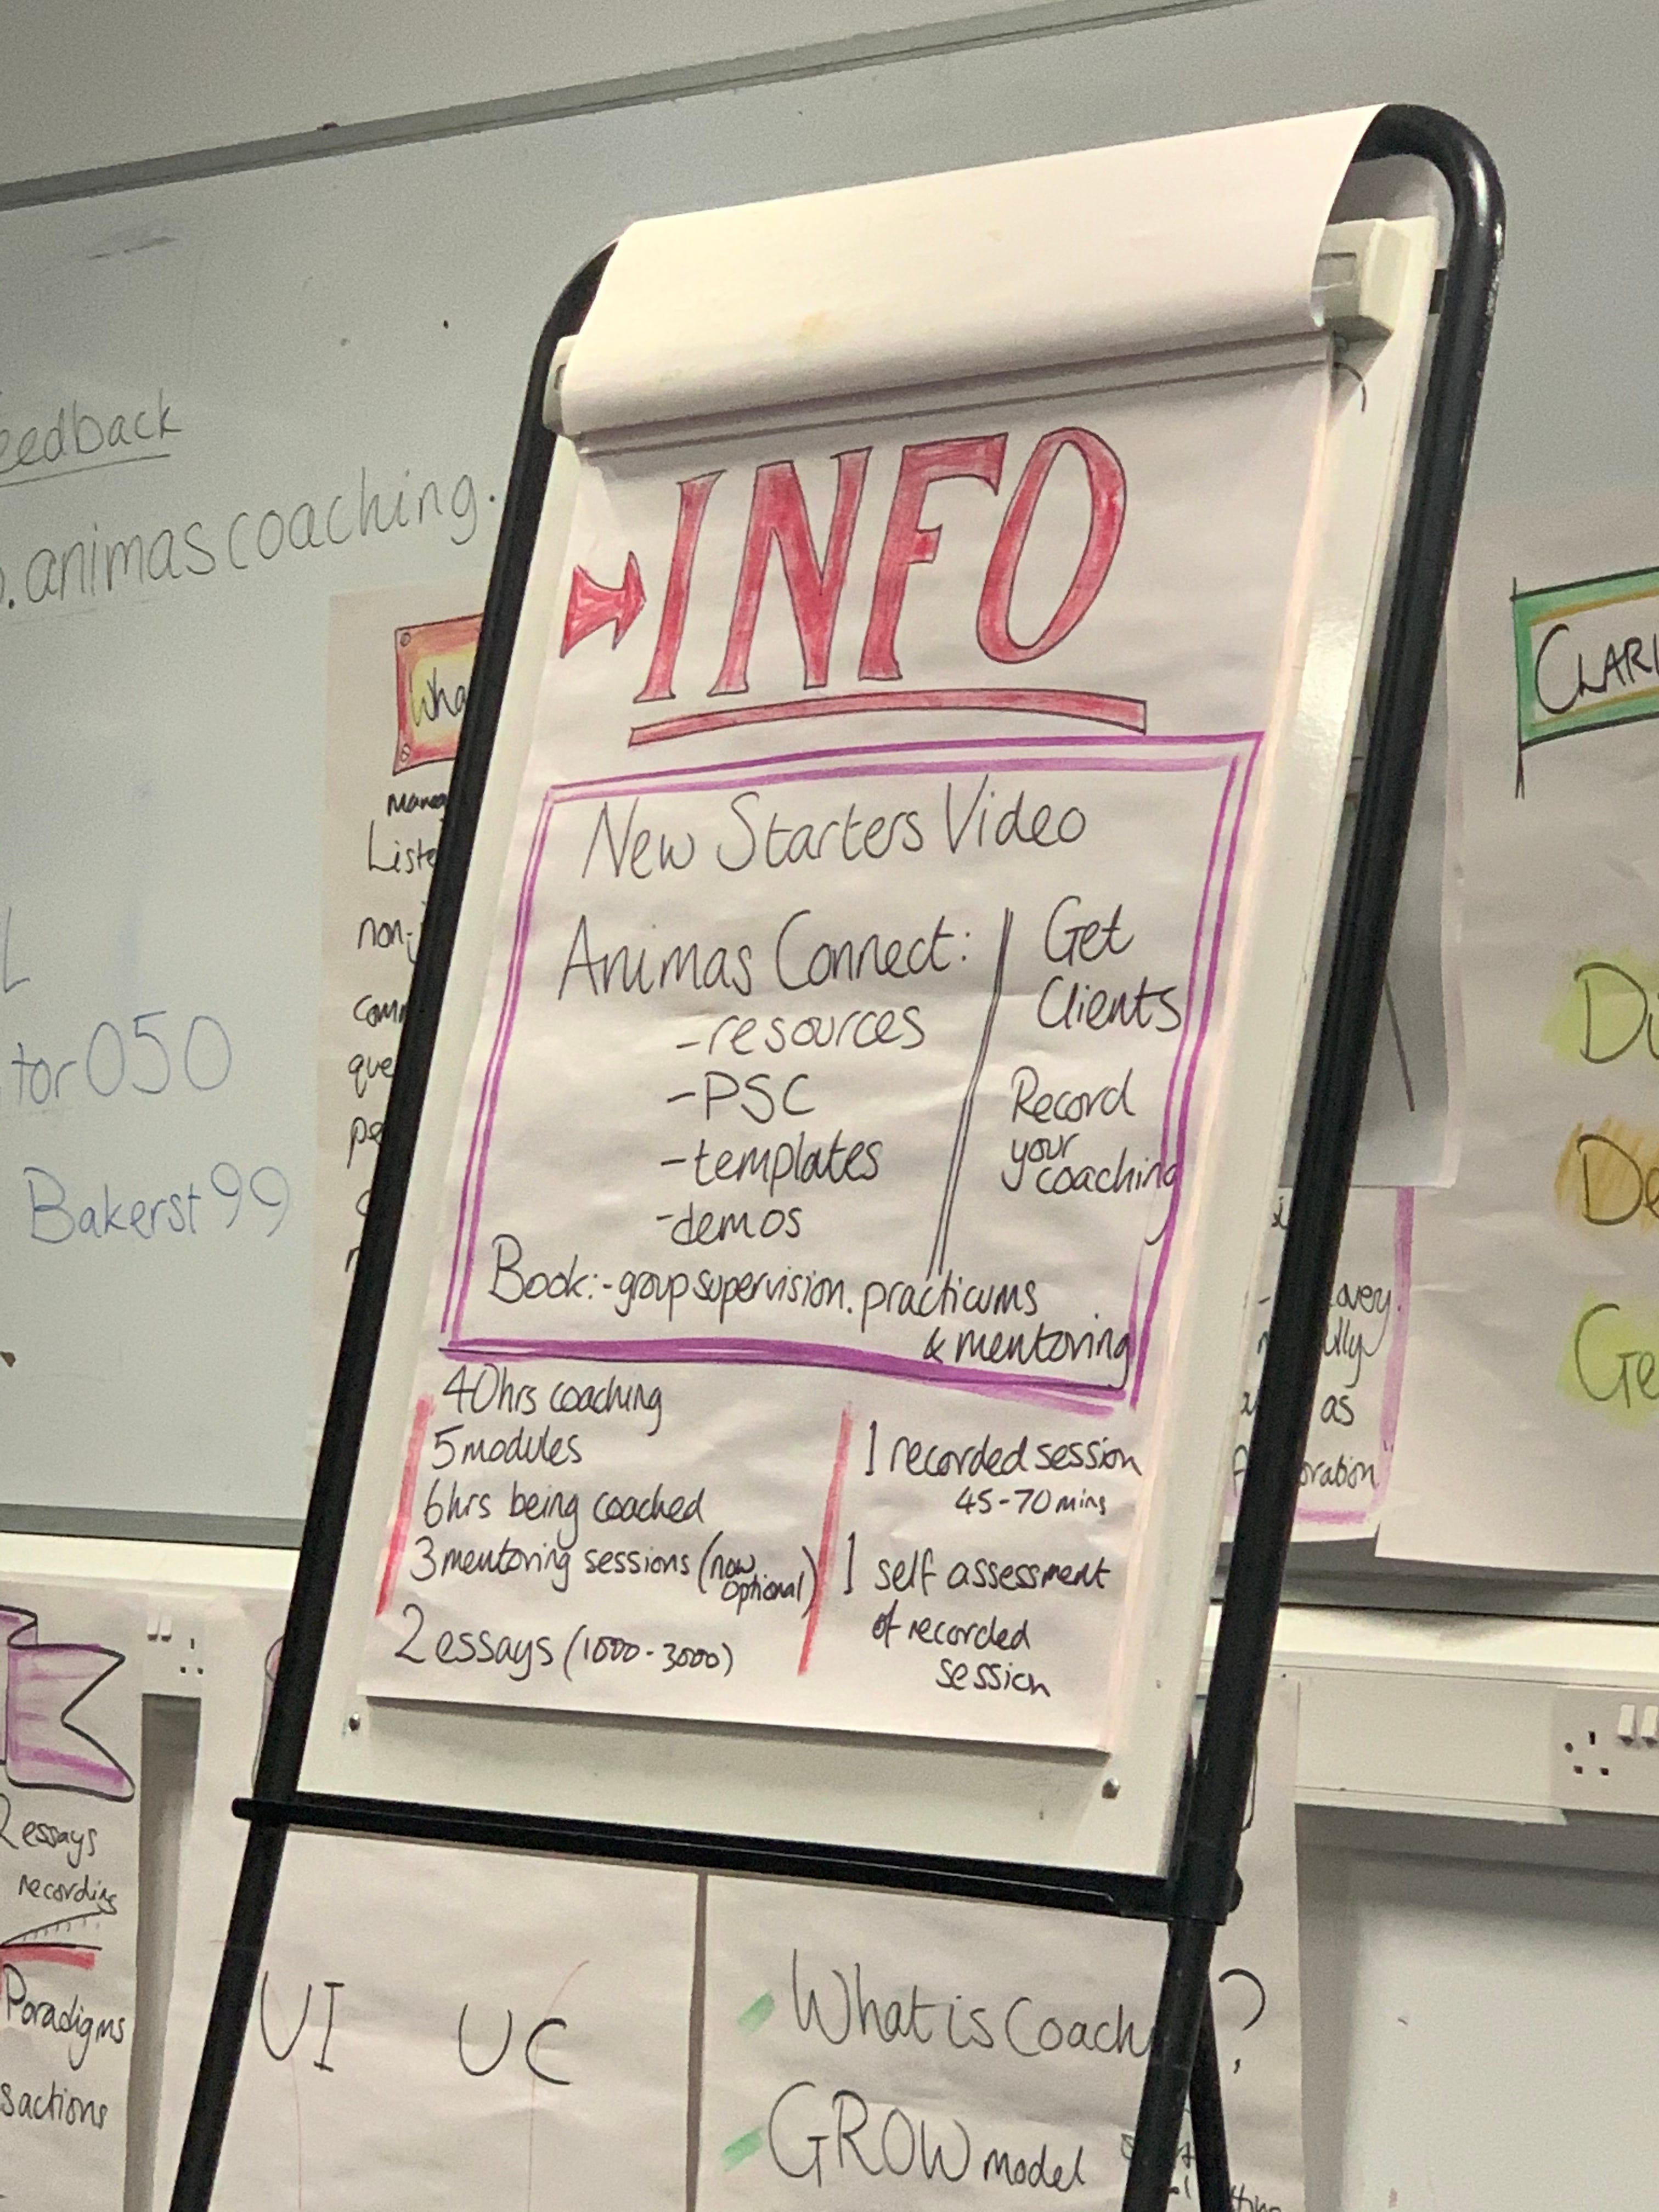 INFO
New Starters Video
Animas Connect:
-resources
-PSC
-templates
-demos
Get
Clients
Record
your
coaching
Book:-group supervision. practicums
& mentoring
40hrs coaching
5 modules
6hrs being coached
3 mentoring sessions (now
optional)
2 essays (1000-3000)
1 recorded session
45-70 mins
1 self assessment
of recorded
session
eedback
.animascoaching.
tor050
Bakerst99
Wha
Mana
Liste
non-j
com
que
pe
CLARI
Di
De
Ge
as
oration
2 essays
recording
Paradigms
sactions
UI UC
What is Coach ?
GROW model